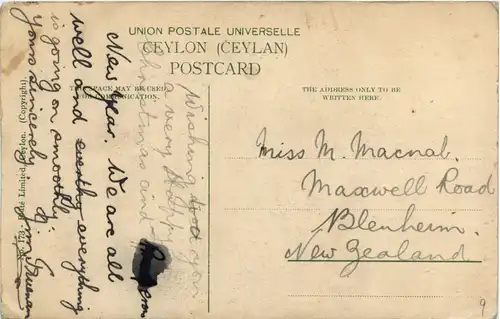 UNION POSTALE UNIVERSELLE
CEYLON (CEYLAN)
POSTCARD
THIS SPACE MAY BE USED
FOR COMMUNICATION.
THE ADDRESS ONLY TO BE
WRITTEN HERE.
Wishing you
a very Happy
Christmas and
New Year. We are all
well and everything
is going on smoothly
Yours sincerely
Miss M. Macnab.
Maxwell Road
Blenheim.
New Zealand.
Limited, Ceylon. (Copyright).
9